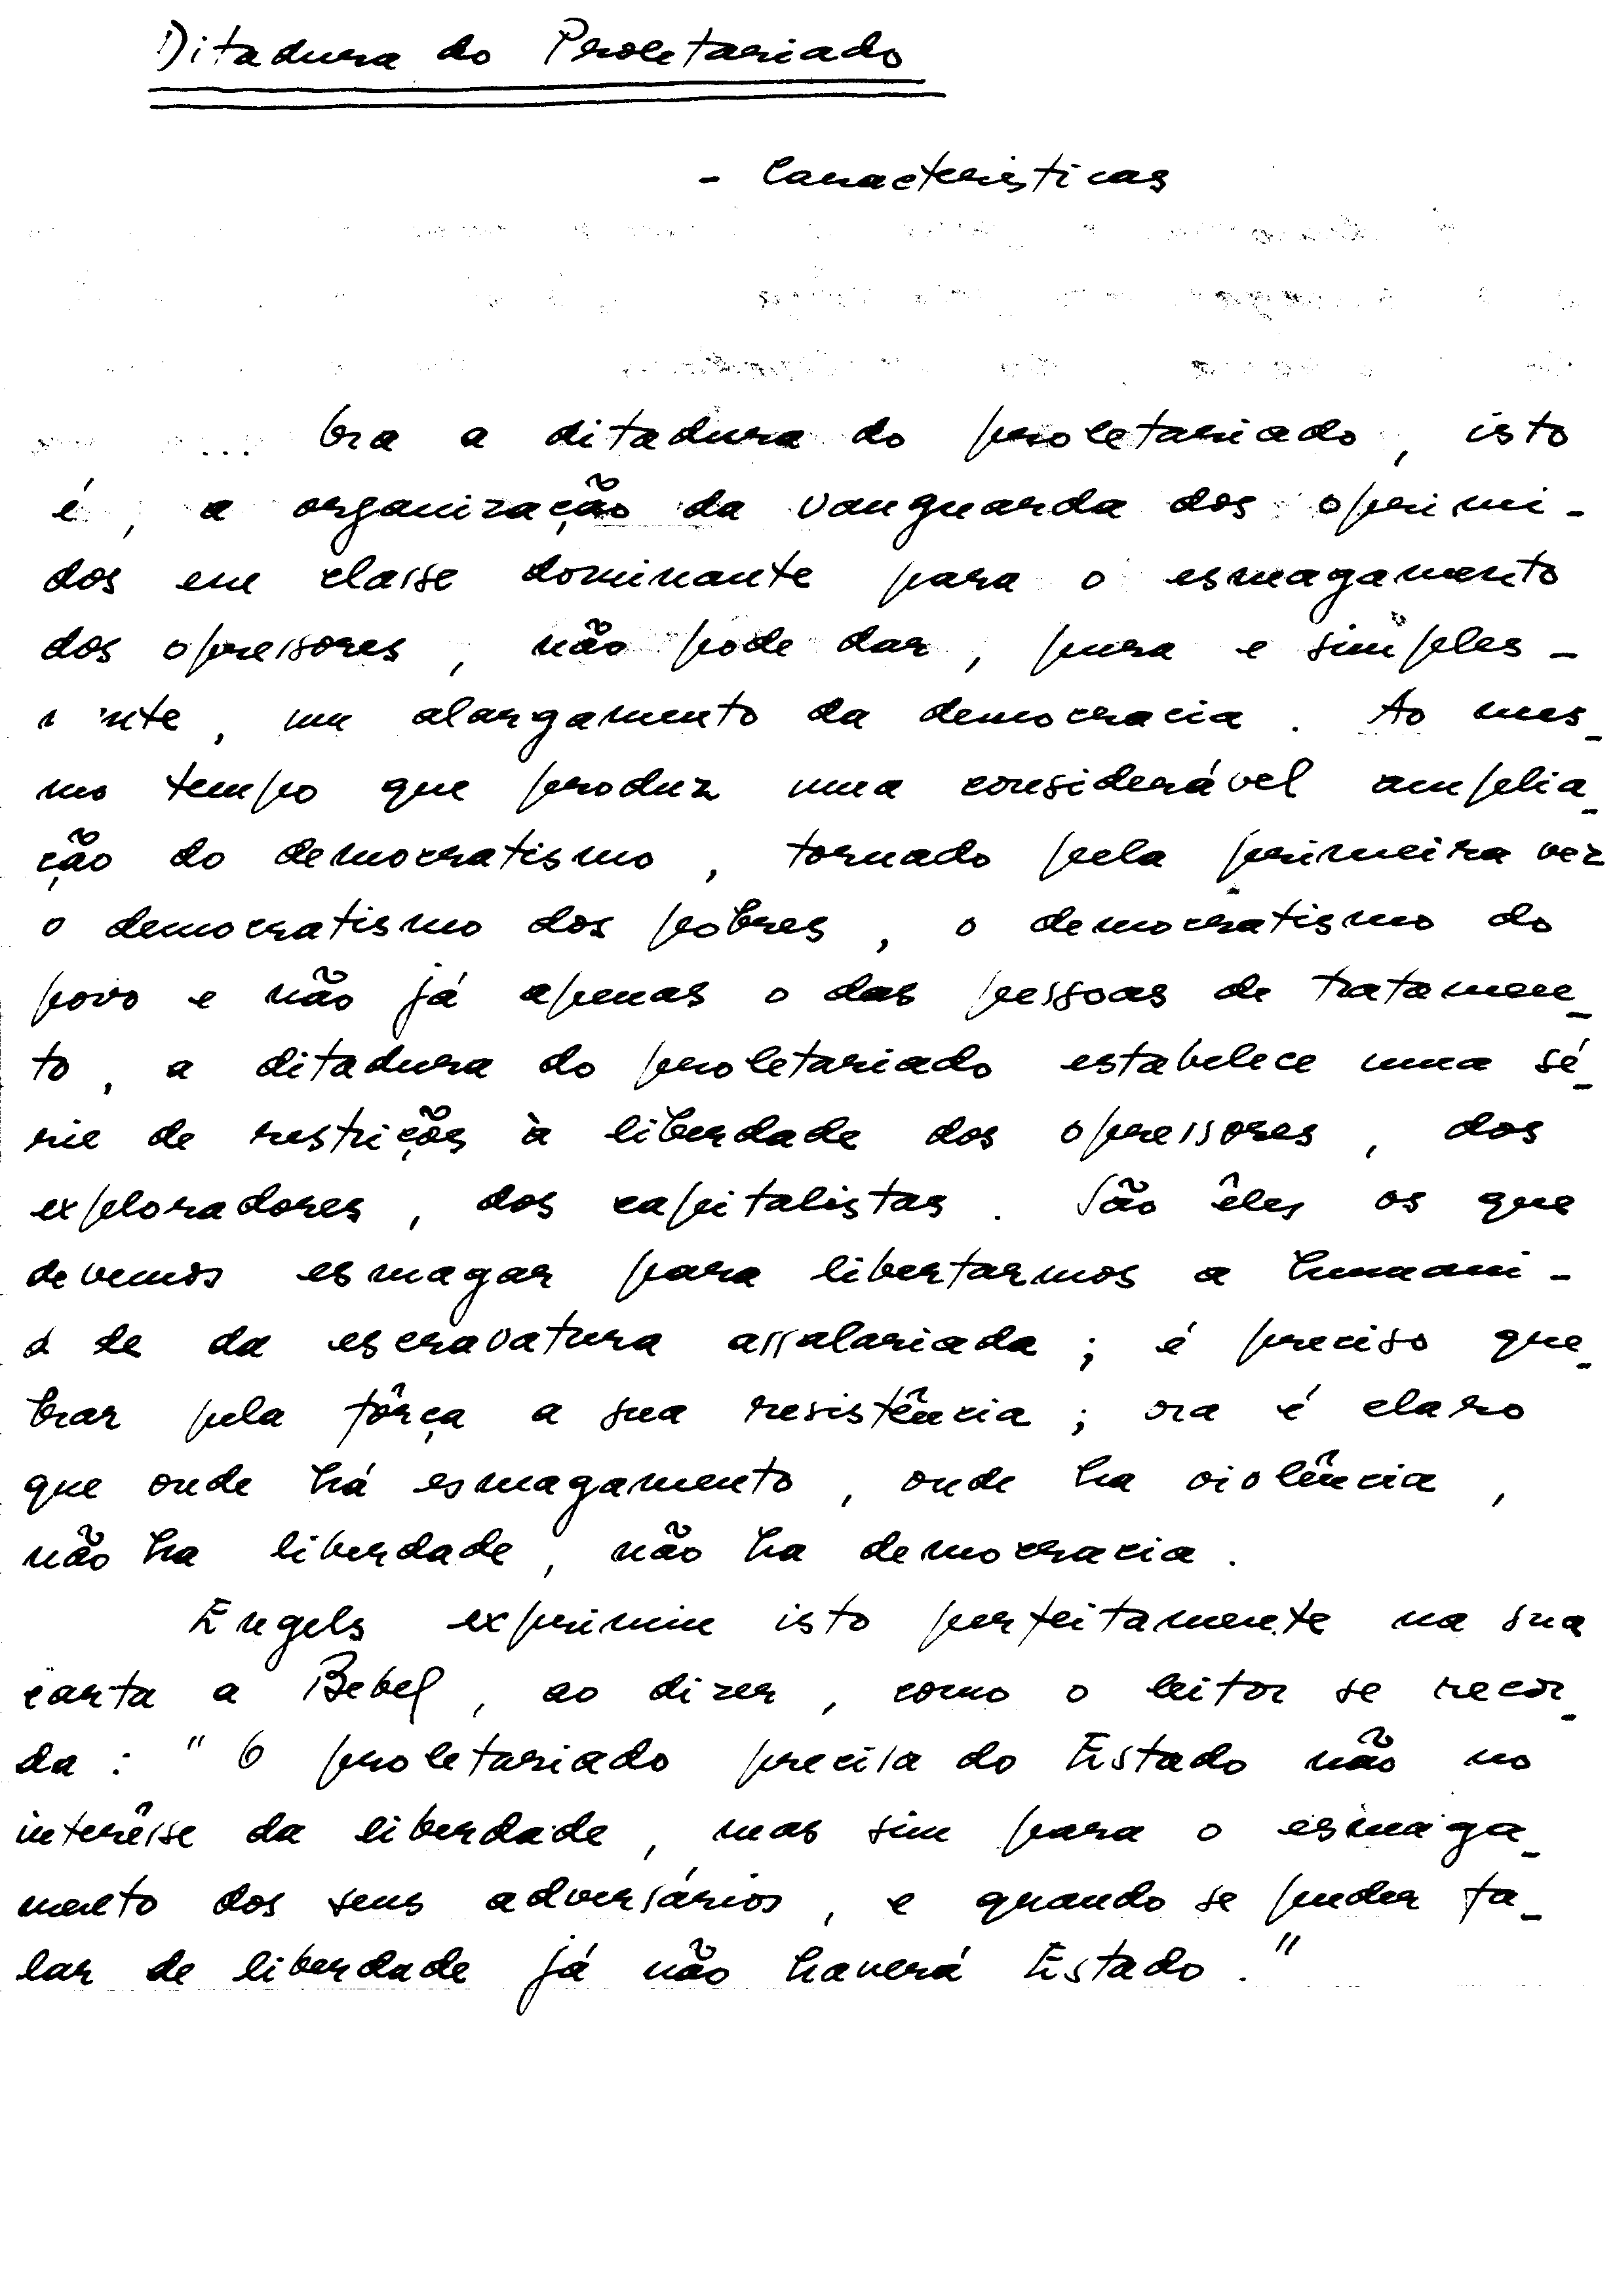 Ditadura do Proletariado
- Caracteristicas
... Ora a ditadura do proletariado, isto
é, a organização da vanguarda dos oprimi-
dos em classe dominante para o esmagamento
dos opressores, não pode dar, pura e simples-
nte, um alargamento da democracia. Ao mes-
mo tempo que produz uma considerável amplia-
ção do democratismo, tornado pela primeira vez
o democratismo dos pobres, o democratismo do
povo e não já apenas o das pessoas de tratamen-
to, a ditadura do proletariado estabelece uma sé-
rie de restrições à liberdade dos opressores, dos
exploradores, dos capitalistas. São êles os que
devemos esmagar para libertarmos a humani-
d de da escravatura assalariada; é preciso que-
brar pela fôrça a sua resistência; ora é claro
que onde há esmagamento, onde ha violência,
não ha liberdade, não ha democracia.
Engels exprimiu isto perfeitamente na sua
carta a Bebel, ao dizer, como o leitor se recor-
da: "O proletariado precisa do Estado não no
interêsse da liberdade, mas sim para o esmaga-
mento dos seus adversários, e quando se puder fa-
lar de liberdade já não haverá Estado."